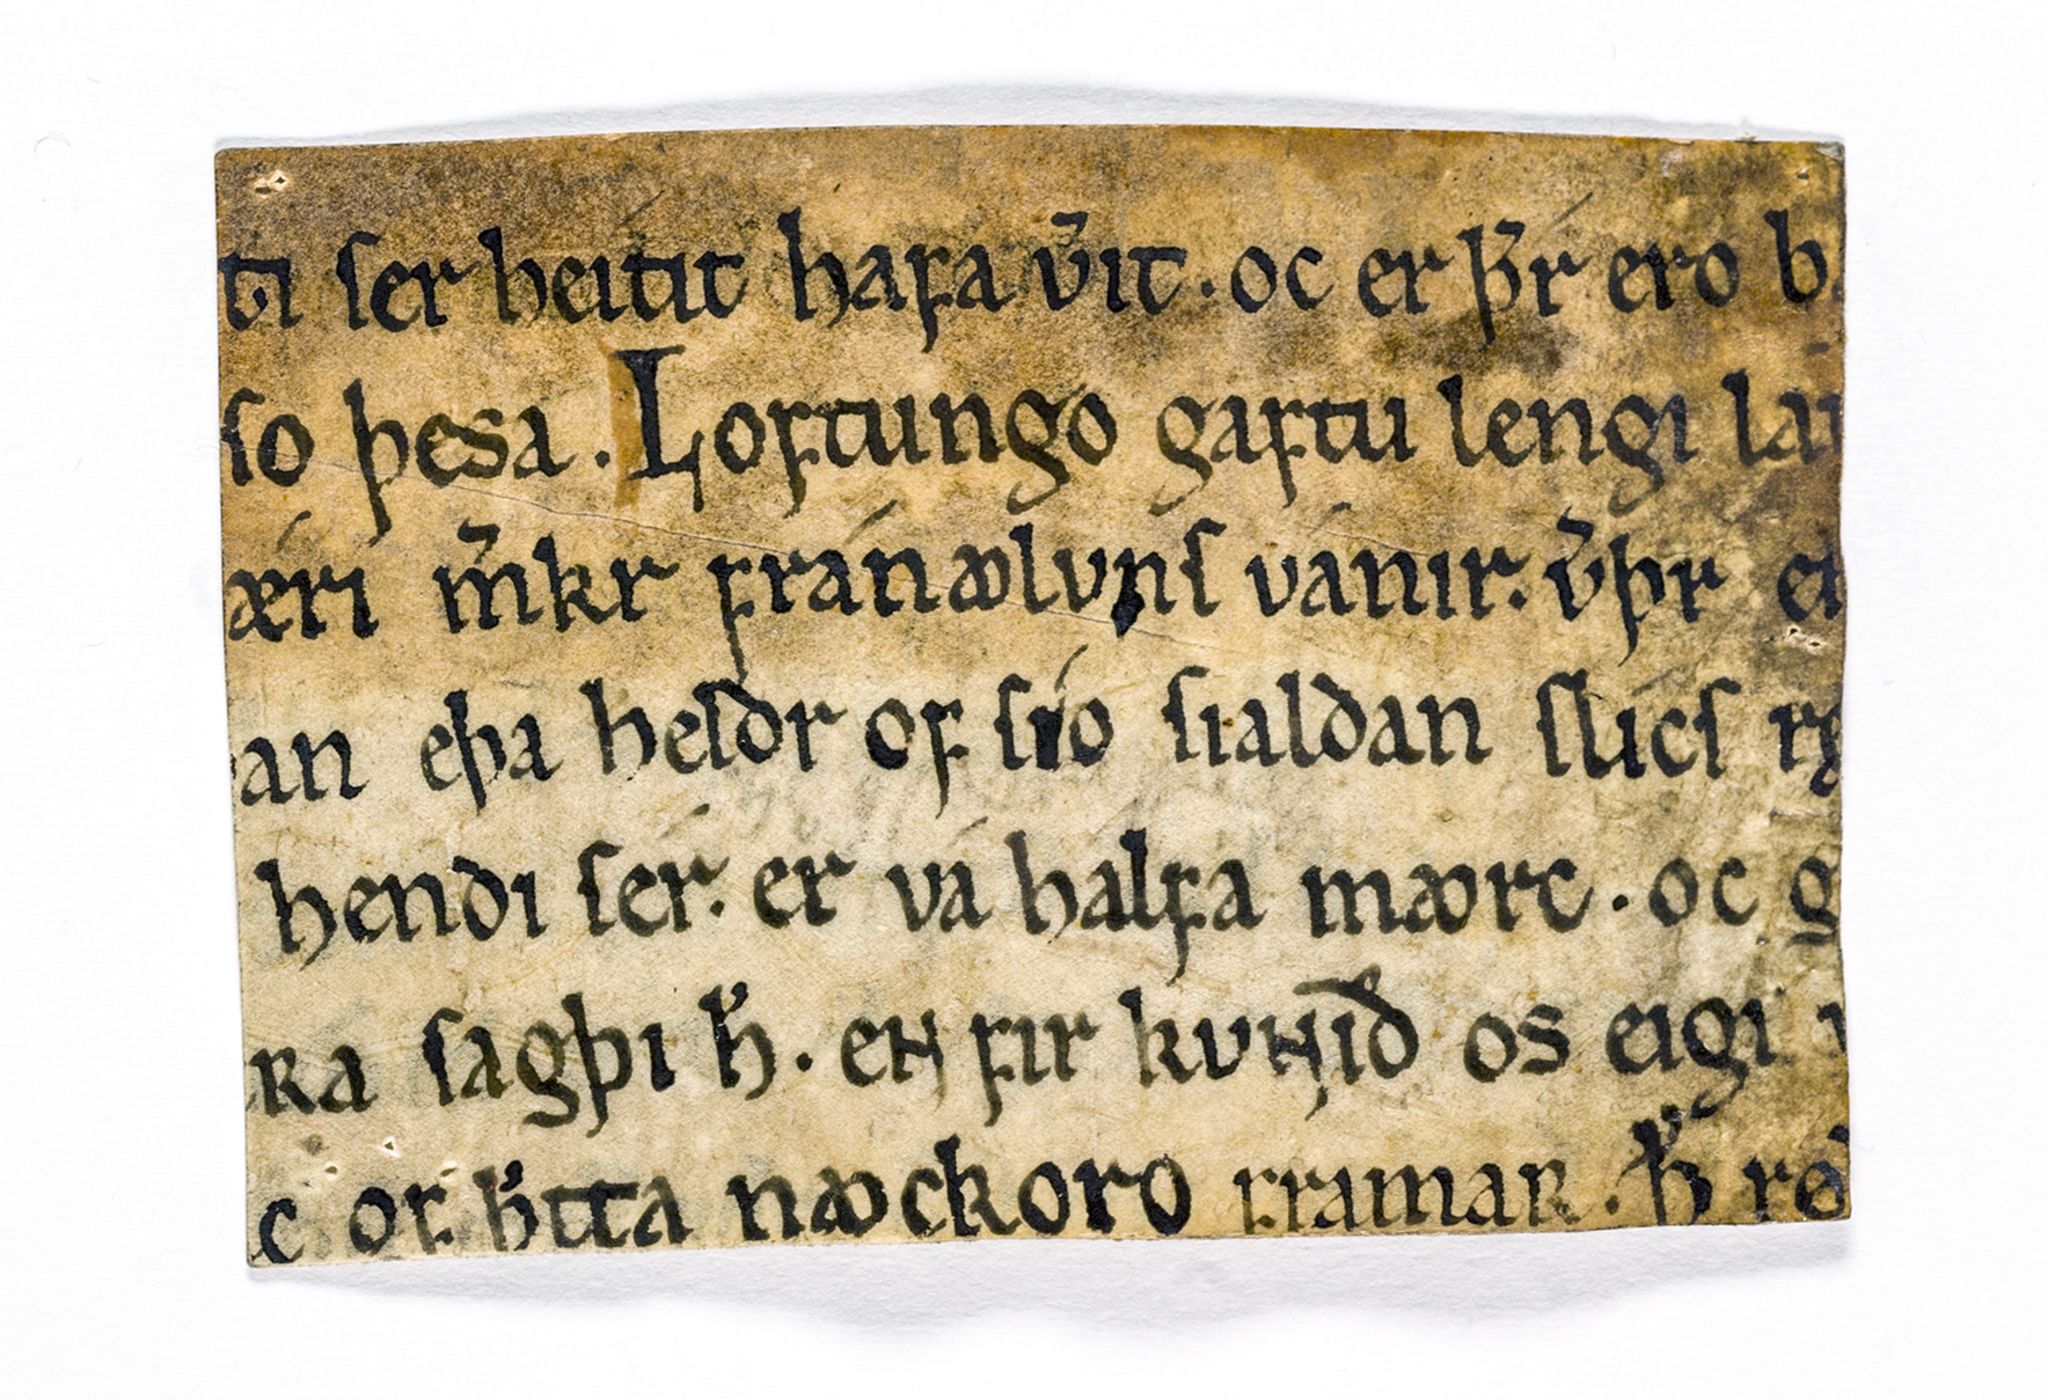 ti ſer heitit hafa v̓it · oc er þr̓ ero b
ſo þesa · Loftungo gaftu lengi lá
æri m̓kr fránꜵlvnſ vánir. v̓þr e
an eþa heſdr of ſío ſialdan ſlícſ
hendi ſér. er vá halfa mꜵrc · oc g
ʀa ſagþi h̓ · eɴ fir kvɴið os eigi
c of h̓tta nꜵckoro framaʀ · h̓ réð